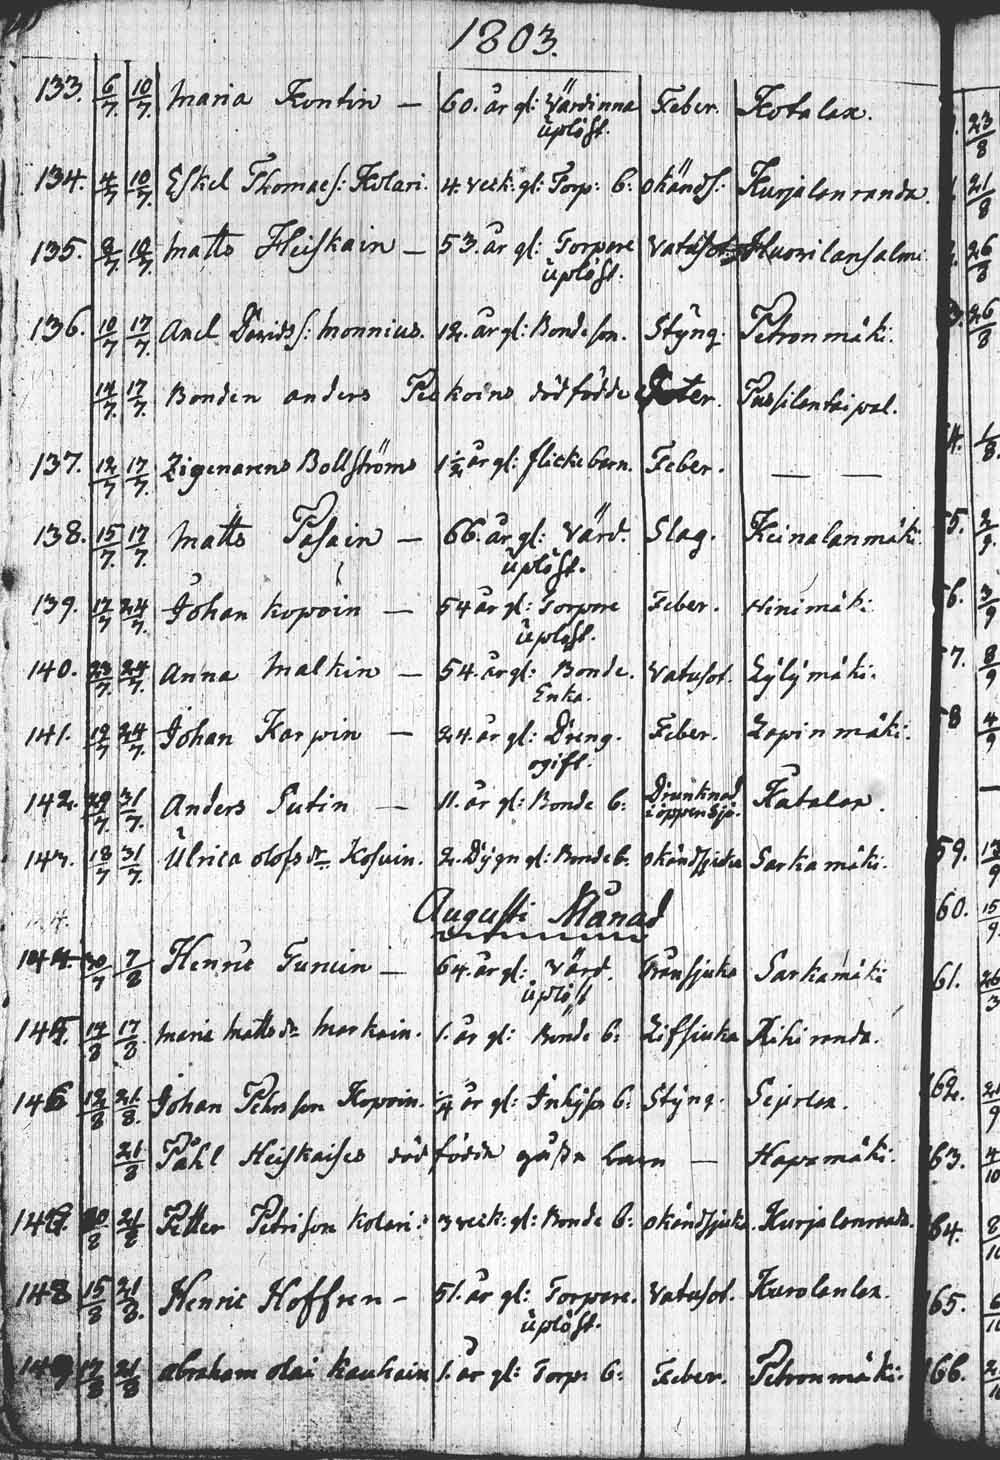 1803.
133. 6/7. 10/7. Maria Kontin — 60. år gl: Värdinna Feber. Kotalax.
üplöst.
134. 4/7 10/7. Eskel Thomaes: Kolari. 4. veck: gl: Torp: b: okänds: Kurjalanranda.
135. 8/7. 10/7. Matts Heiskain — 53. år gl: Torpare Vatusot. Huovilansalmi
üplöst.
136. 10/7 17/7. Axel Davids S: Monnius. 12. år gl: Bonde son. Styng Petronmäki.
14/7. 17/7. Bonden Anders Peckoins dödfödde Pussilantaipal.
137. 12/7 17/7. Zigenarens Bollströms 1 1/2 år gl: flickebarn. Feber. — —
138. 15/7. 17/7. Matts Pasain — 66. år gl: Värd. Slag. Keinalanmäki
üplöst.
139. 17/7 24/7. Johan Kopoin — 54 år gl: Torpare Feber. Hinimäki
üplöst.
140. 23/7. 24/7. Anna Malkin — 54. år gl: Bonde. Vatusot. Lylymäki.
Enka.
141. 19/7 24/7. Johan Karpin — 24. år gl: Dreng. Feber. Lapinmäki.
ogift.
142. 29/7. 31/7. Anders Putin — 11. år gl: Bonde b: Drunknad Katalax.
i öppen Sjö.
143. 18/7 31/7. Ulrica Olofs dr Kosuin. 2. Dygn gl: Bonde b. okändsjuka Sarkamäki.
Augusti Månad
144. 30/7 7/8 Henric Turuin — 64. år gl: Värd. Sarkamäki
üplöst
145. 14/8 17/8. Maria Matts dr Markain. 1. år gl: Bonde b: Kihiranda.
146 12/8 21/8. Johan Pehrsson Kopoin. 1/4 år gl: Inhyses b: Styng.
21/8 Påhl Heiskaises död födda gåsse barn — Hapamäki.
147. 20/8 21/8 Petter Petrison Kolari: 3 veck: gl: Bonde b: okändsjuka. Kurjalanranda.
148 15/8 21/8. Henric Hoffren — 51. år gl: Torpare. Vatusot. Kurolanlax.
üplöst.
149 17/8 21/8 Abraham Olai Kaukain 1. år gl: Torp: b: Feber. Petronmäki.
23/8
21/8
26/8
26/8
1/8.
55. 2/9.
56. 3/9
57. 8/9
58 4/9
59. 13/9
60. 15/9.
61. 26/3
162. 21/9
163. 4/10
164. 8/10
165. 6/10
166. 2/10